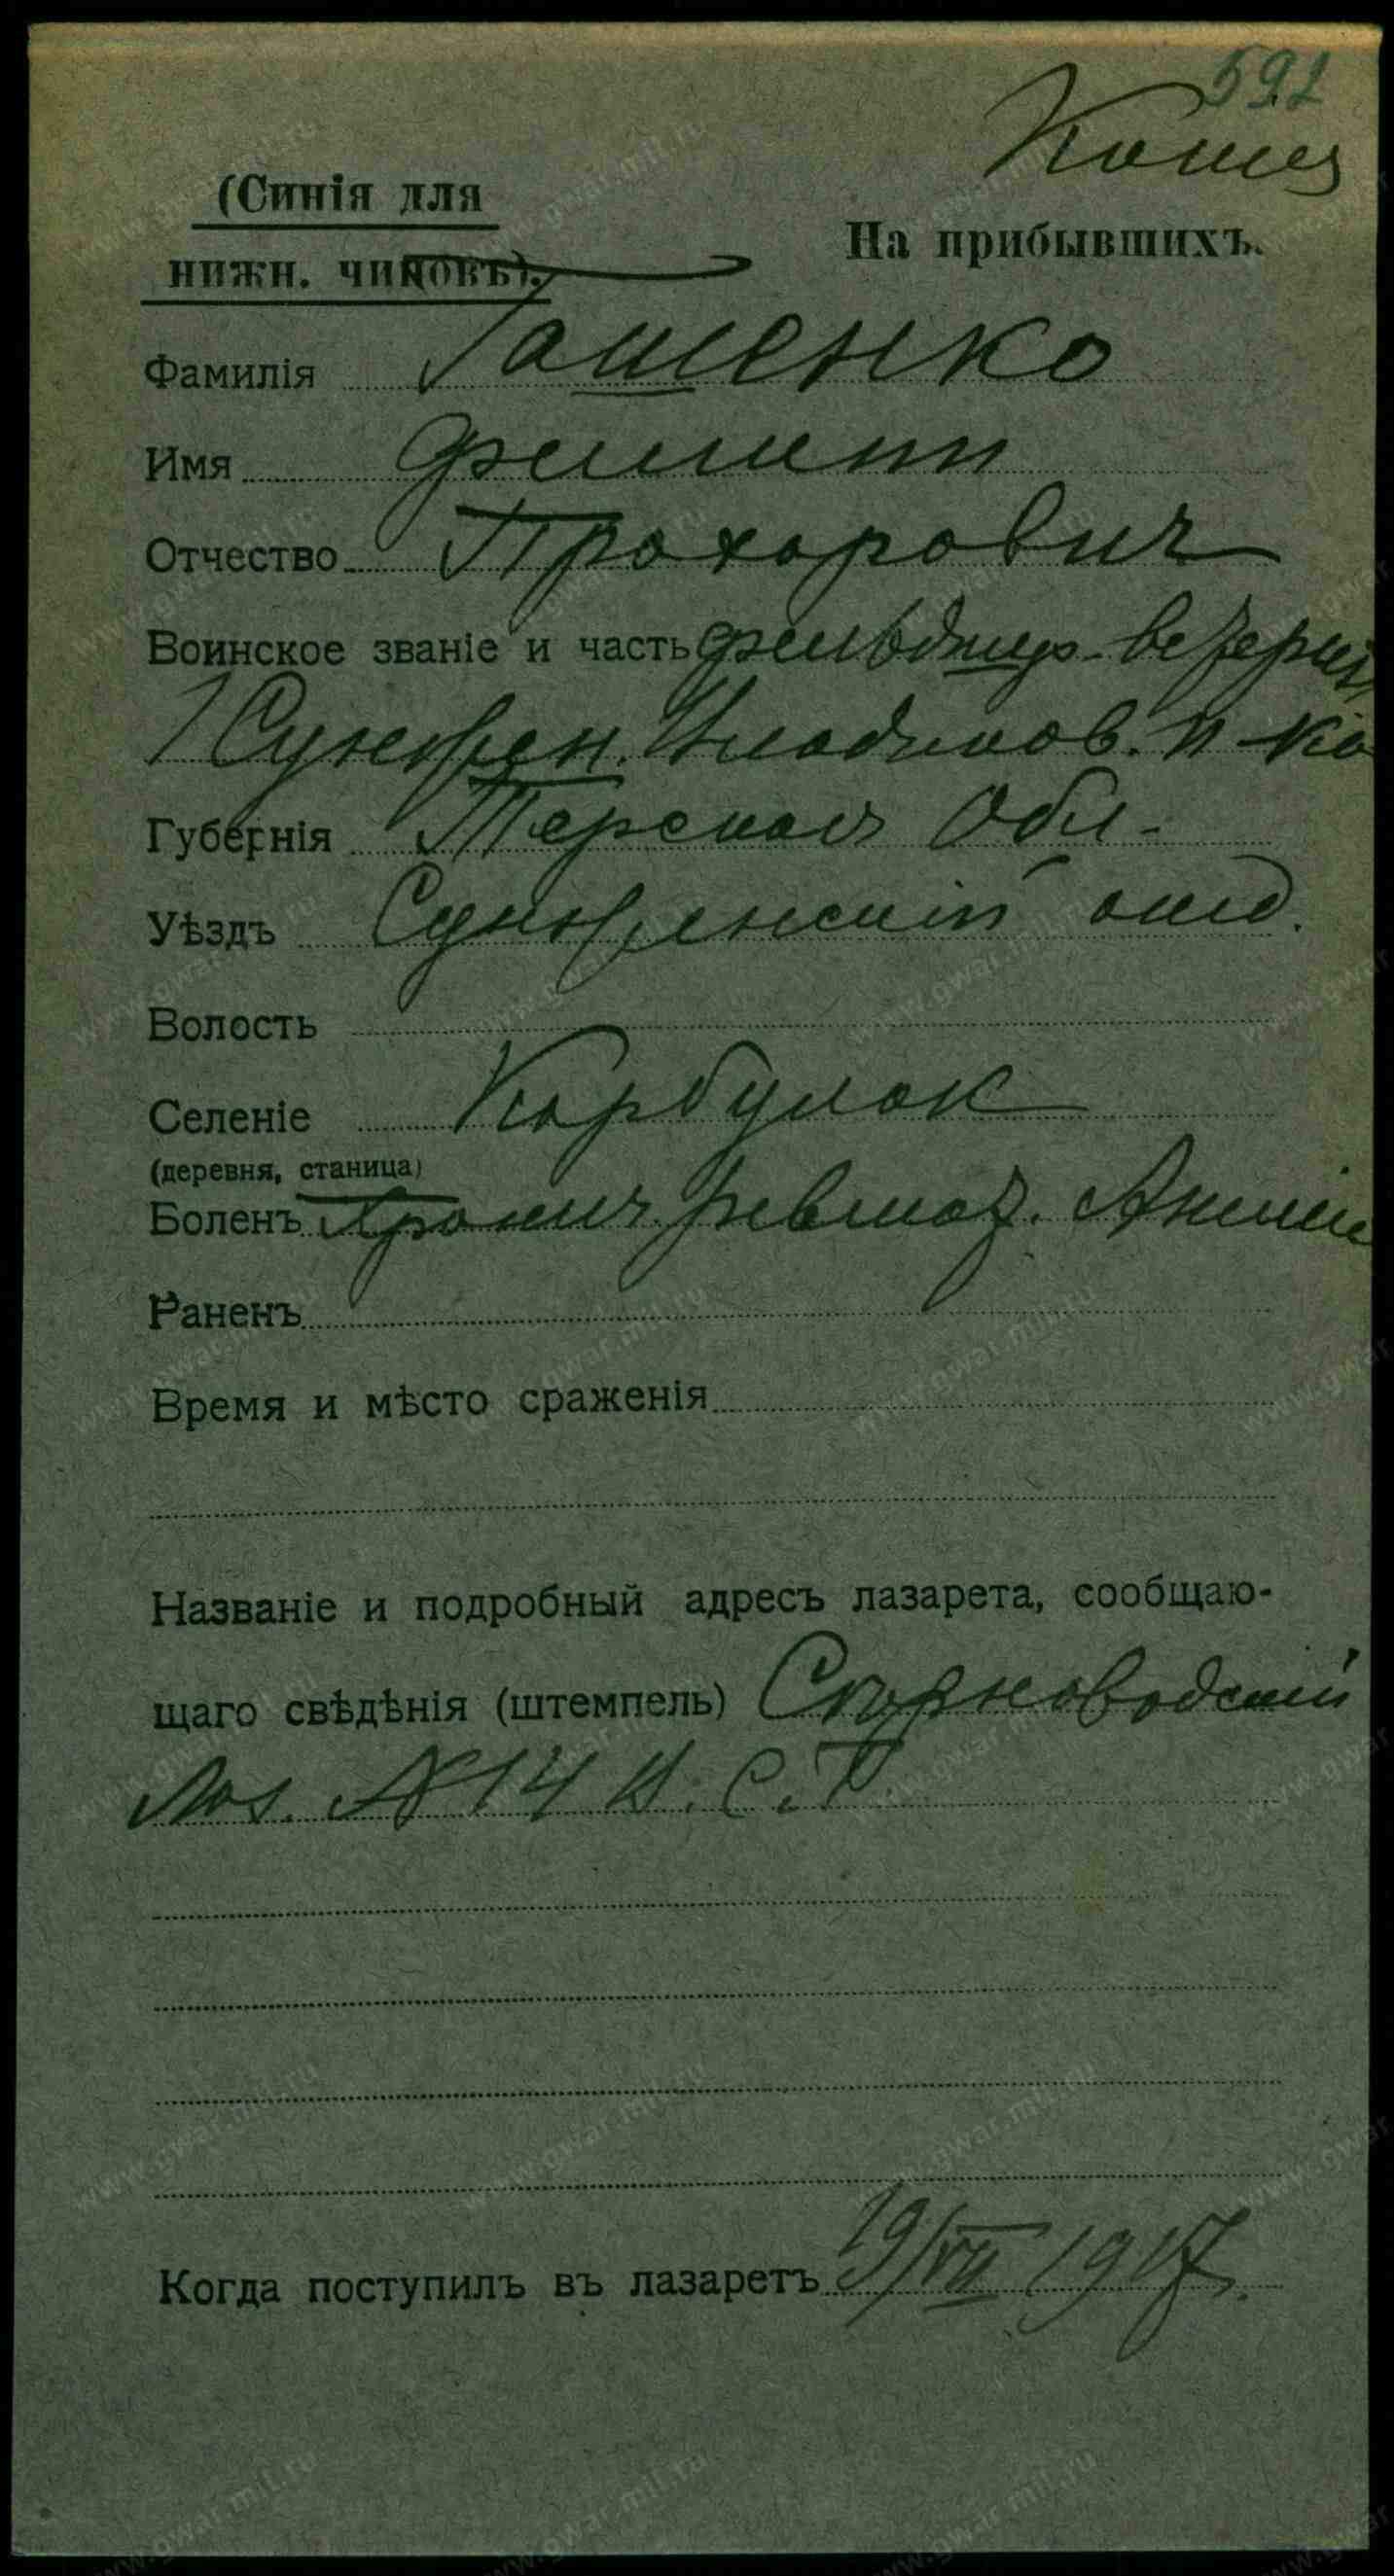 592
(Синія для
нижн. чиновъ).
На прибывшихъ.
Фамилія Гашенко
Имя Филипп
Отчество Прохорович
Воинское званіе и часть фельдшер
1 Сунжен. Владиков. п-ка
Губернія Терской Обл.
Уѣздъ Сунженскій отд.
Волость
Селеніе Карбулак
(деревня, станица)
Боленъ Хронич. ревмат.
Раненъ
Время и мѣсто сраженія
Названіе и подробный адресъ лазарета, сообщаю-
щаго свѣдѣнія (штемпель)
Лаз. № 14 В. С. Г.
Когда поступилъ въ лазаретъ 19/VII 1917.